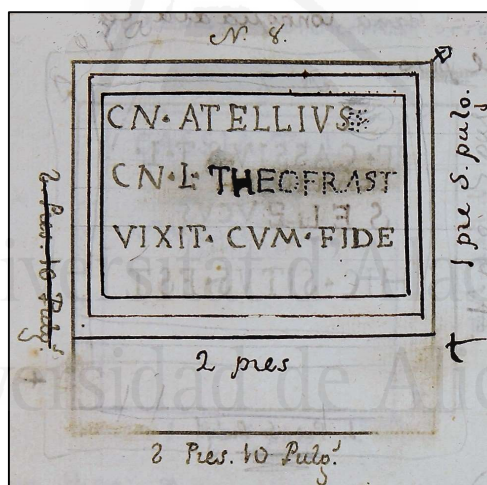 N. 8.
CN· ATELLIVS
CN·L· THEOFRAST
VIXIT· CVM·FIDE
2 pies
2 Pies. 10 Pulg.
1 pie 5. pulg.
2 Pies. 10 Pulg.